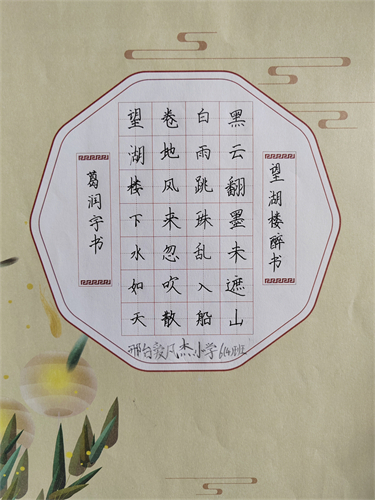 望湖楼醉书
黑云翻墨未遮山
白雨跳珠乱入船
卷地风来忽吹散
望湖楼下水如天
葛润宇书
小学6(4)班